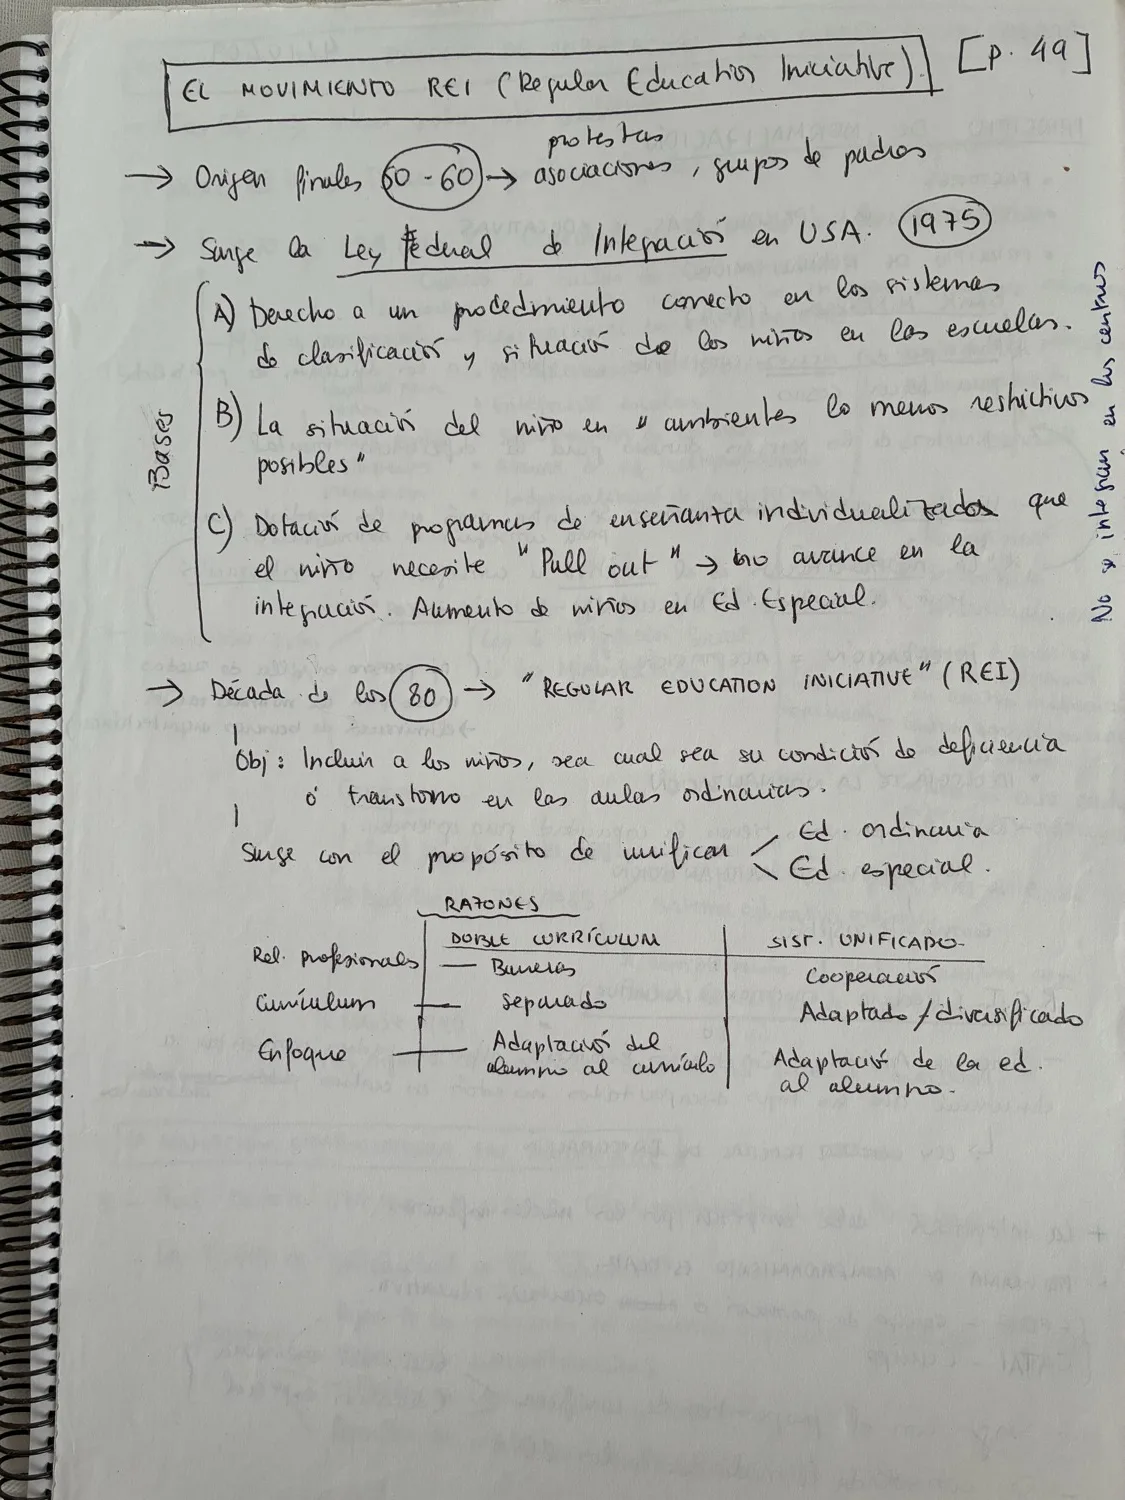 EL MOVIMIENTO REI (Regular Education Iniciative). [p. 49]
protestas
→ Origen finales 50-60 → asociaciones, grupos de padres
→ Surge la Ley Federal de Integración en USA. 1975
Bases
A) Derecho a un procedimiento correcto en los sistemas
de clasificación y situación de los niños en las escuelas.
B) La situación del niño en "ambientes lo menos restrictivos
posibles"
C) Dotación de programas de enseñanza individualizados que
el niño necesite "Pull out" → no avance en la
integración. Aumento de niños en Ed. Especial.
No se integran en los centros
→ Década de los 80 → "REGULAR EDUCATION INICIATIVE" (REI)
Obj: Incluir a los niños, sea cual sea su condición de deficiencia
ó transtorno en las aulas ordinarias.
Surge con el propósito de unificar Ed. ordinaria
Ed. especial.
RAZONES
DOBLE CURRÍCULUM SIST. UNIFICADO
Rel. profesionales — Barreras Cooperación
Currículum — separado Adaptado/diversificado
Enfoque — Adaptación del Adaptación de la ed.
alumno al currículo al alumno.